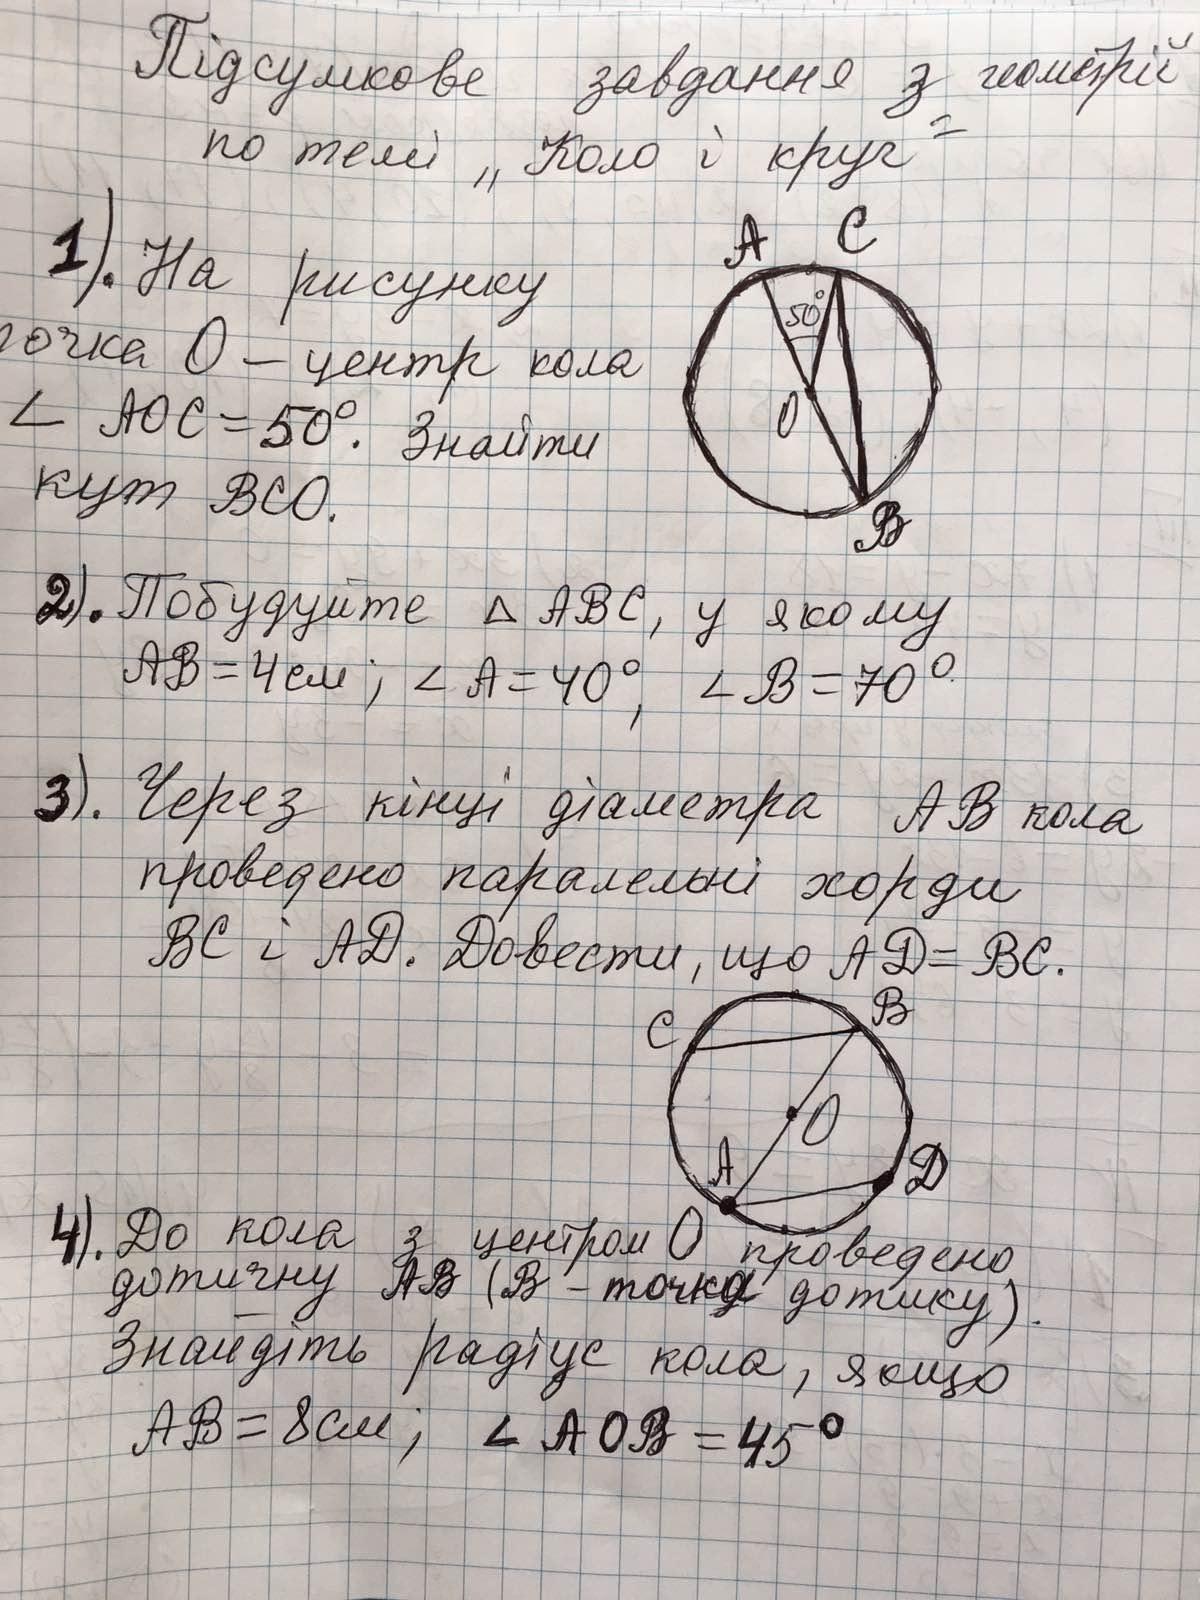 Підсумкове завдання з геометрії
по темі „Коло і круг"
1). На рисунку
точка О – центр кола
∠ АОС = 50°. Знайти
кут ВСО.
А С
50°
О
В
2). Побудуйте △ АВС, у якому
АВ = 4см; ∠ А = 40°, ∠ В = 70°
3). Через кінці діаметра АВ кола
проведено паралельні хорди
ВС і АD. Довести, що АD = ВС.
С В
О
А D
4). До кола з центром О проведено
дотичну АВ (В – точка дотику).
Знайдіть радіус кола, якщо
АВ = 8см; ∠ АОВ = 45°